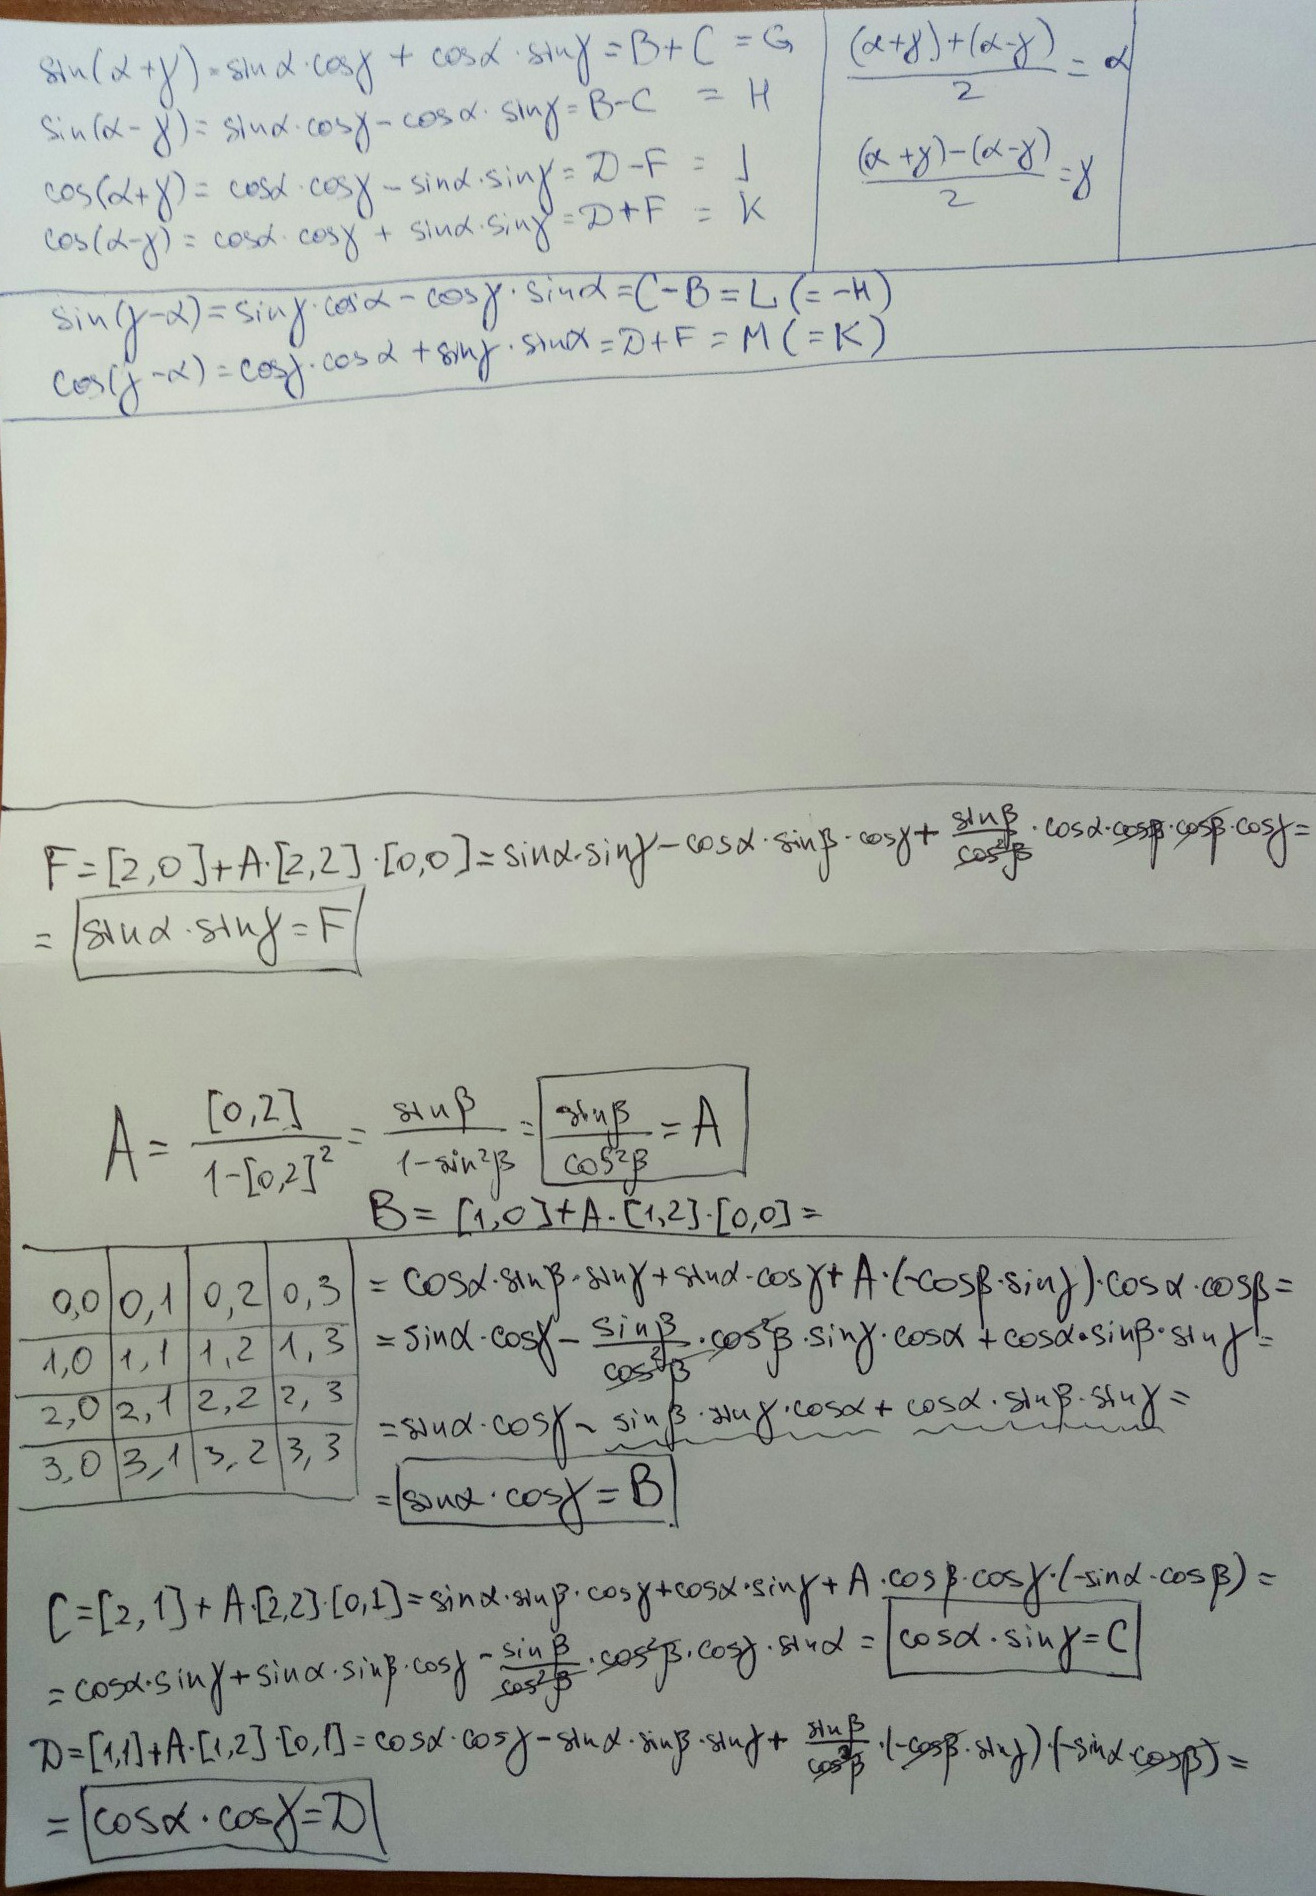 sin(α+γ)=sinα·cosγ + cosα·sinγ=B+C = G
sin(α-γ)=sinα·cosγ-cosα·sinγ=B-C = H
cos(α+γ)=cosα·cosγ-sinα·sinγ=D-F = J
cos(α-γ)=cosα·cosγ+sinα·sinγ=D+F = K
((α+γ)+(α-γ))/2=α
((α+γ)-(α-γ))/2=γ
sin(γ-α)=sinγ·cosα-cosγ·sinα=C-B=L(=-H)
cos(γ-α)=cosγ·cosα+sinγ·sinα=D+F=M(=K)
F=[2,0]+A·[2,2]·[0,0]=sinα·sinγ-cosα·sinβ·cosγ+sinβ/cos²β·cosα·cosβ·cosβ·cosγ=
= sinα·sinγ=F
A=[0,2]/(1-[0,2]²)=sinβ/(1-sin²β)=sinβ/cos²β=A
B=[1,0]+A·[1,2]·[0,0]=
0,0 0,1 0,2 0,3
1,0 1,1 1,2 1,3
2,0 2,1 2,2 2,3
3,0 3,1 3,2 3,3
=cosα·sinβ·sinγ+sinα·cosγ+A·(-cosβ·sinγ)·cosα·cosβ=
=sinα·cosγ-sinβ/cos²β·cos²β·sinγ·cosα+cosα·sinβ·sinγ=
=sinα·cosγ-sinβ·sinγ·cosα+cosα·sinβ·sinγ=
=sinα·cosγ=B
C=[2,1]+A·[2,2]·[0,1]=sinα·sinβ·cosγ+cosα·sinγ+A·cosβ·cosγ·(-sinα·cosβ)=
=cosα·sinγ+sinα·sinβ·cosγ-sinβ/cos²β·cos²β·cosγ·sinα=cosα·sinγ=C
D=[1,1]+A·[1,2]·[0,1]=cosα·cosγ-sinα·sinβ·sinγ+sinβ/cos²β·(-cosβ·sinγ)·(-sinα·cosβ)=
=cosα·cosγ=D